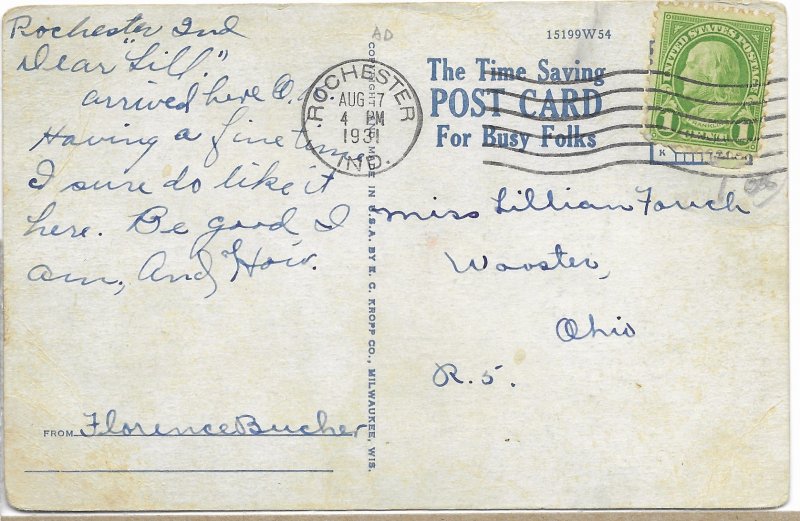 Rochester Ind
Dear "Lill."
arrived here O.K.
Having a fine time
I sure do like it
here. Be good I
am, And How.
FROM Florence Bucher
AD
COPYRIGHT MADE IN U.S.A. BY E. C. KROPP CO., MILWAUKEE, WIS.
15199W54
The Time Saving
POST CARD
For Busy Folks
ROCHESTER
AUG 7
4 PM
1931
IND.
UNITED STATES POSTAGE
1 1
K
Miss Lillian Fouch
Wooster,
Ohio
R. 5.